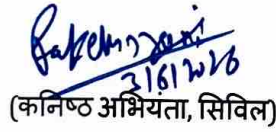 3/6/2026
(कनिष्ठ अभियंता, सिविल)